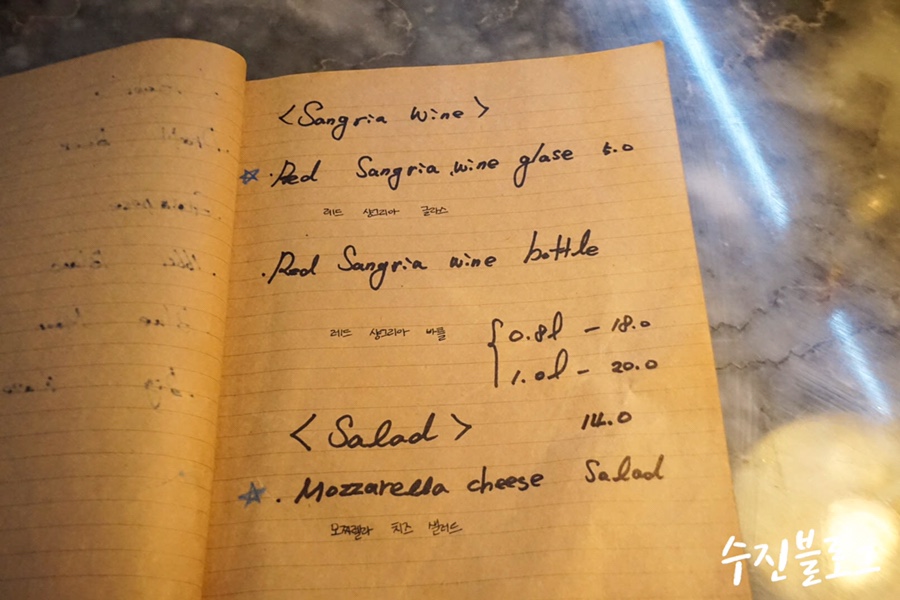 <Sangria wine>
☆ · Red Sangria wine glase 5.0
레드 샹그리아 글라스
· Red Sangria wine bottle
레드 샹그리아 바틀 { 0.8l – 18.0
1.0l – 20.0
<Salad> 14.0
☆ · Mozzarella cheese Salad
모짜렐라 치즈 샐러드